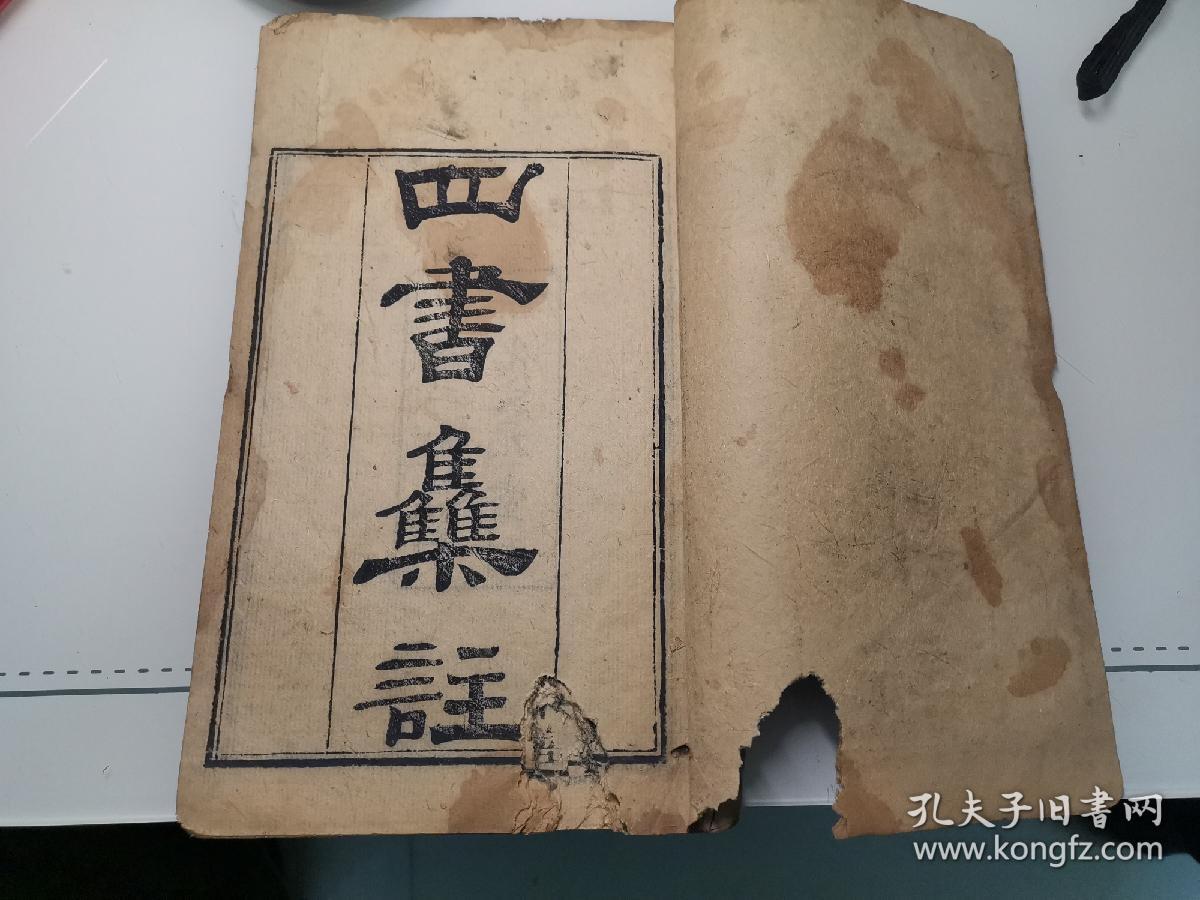 四書集註
孔夫子旧书网
www.kongfz.com